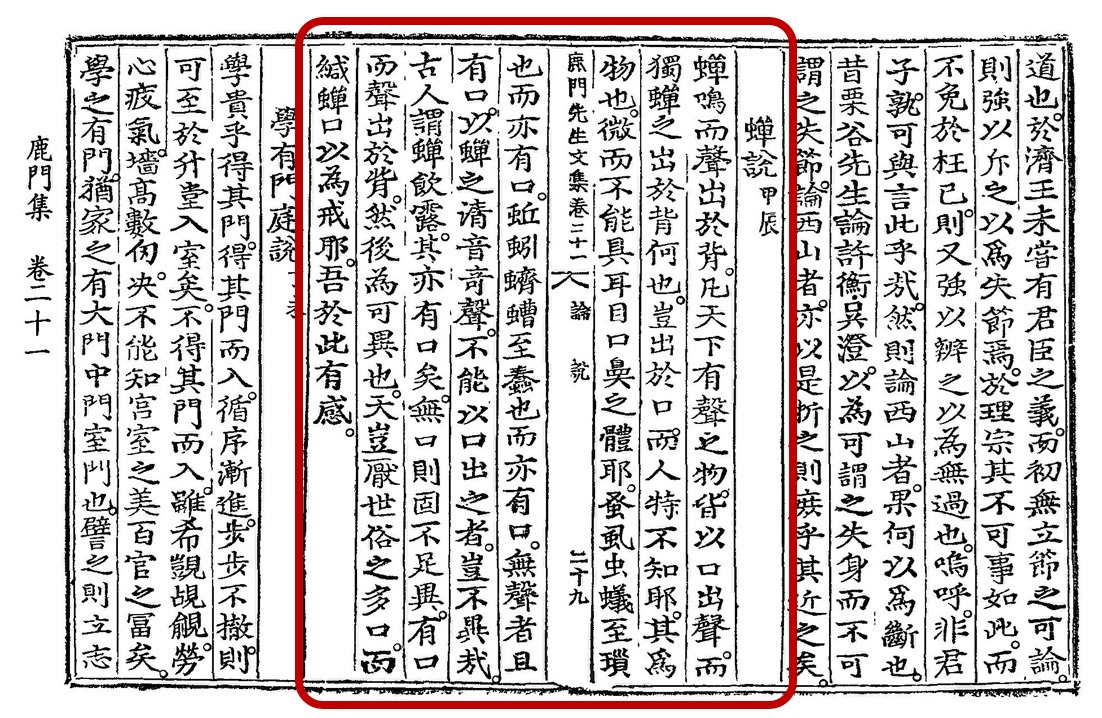 道也。於濟王未嘗有君臣之義。而初無立節之可論。
則強以斥之以爲失節焉。於理宗其不可事如此。而
不免於枉己。則又強以辨之以爲無過也。嗚呼。非君
子孰可與言此乎哉。然則論西山者。果何以爲斷也。
昔栗谷先生論許衡吳澄。以為可謂之失身而不可
謂之失節。論西山者。亦以是折之則庶乎其近之矣。
蟬說 甲辰
蟬鳴而聲出於背。凡天下有聲之物。皆以口出聲。而
獨蟬之出於背何也。豈出於口。而人特不知耶。其爲
物也。微而不能具耳目口鼻之體耶。蚤虱虫蟻至瑣
鹿門先生文集卷二十一 論 說 二十九
也而亦有口。蚯蚓蠐螬至蠢也而亦有口。無聲者且
有口。以蟬之淸音奇聲。不能以口出之者。豈不異哉。
古人謂蟬飮露。其亦有口矣。無口則固不足異。有口
而聲出於背。然後為可異也。天豈厭世俗之多口。而
緘蟬口以為戒耶。吾於此有感。
學有門庭說
學貴乎得其門。得其門而入。循序漸進。步步不撤。則
可至於升堂入室矣。不得其門而入。雖希覬覘覦。勞
心疲氣。墻高數仞。决不能知宮室之美百官之富矣。
學之有門。猶家之有大門中門室門也。譬之則立志
鹿門集 卷二十一